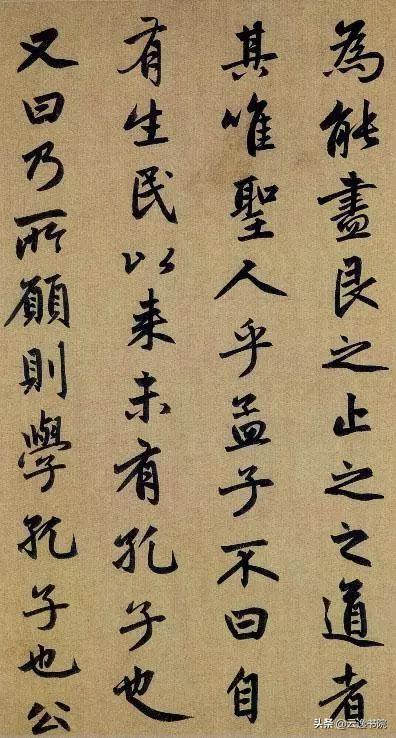 為能盡艮之止之之道者
其唯聖人乎孟子不曰自
有生民以来未有孔子也
又曰乃所願則學孔子也公
头条@云逸书院